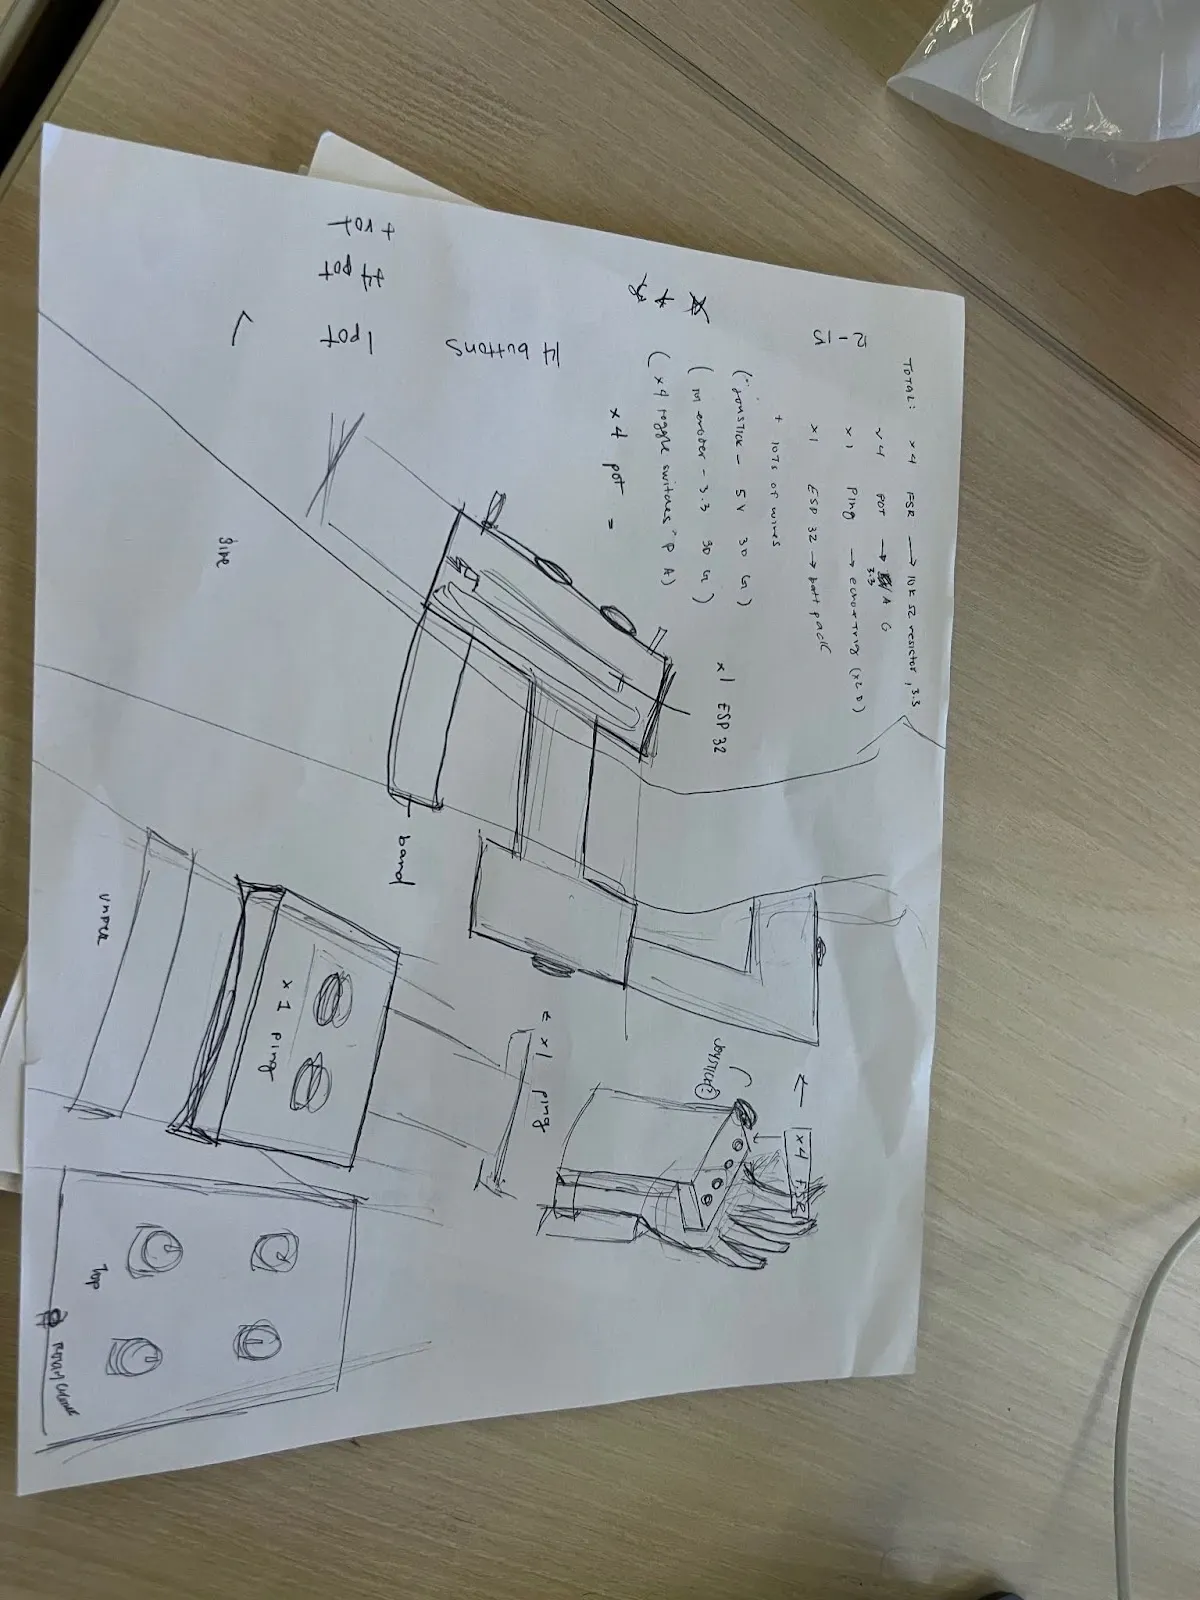 TOTAL: x4 FSR → 10K Ω resistor, 3.3
x4 POT → 3.3/A G
x1 Ping → echo+Trig (x2 D)
x1 ESP 32 → batt pack
+ lots of wires
12-15
(joystick - 5V 3D G)
( rot encoder - 3.3 3D G )
( x4 toggle switches - P A)
x4 pot =
x1 ESP 32
4 buttons
1 pot
+4 pot
+ rot
side
band
under
x 1 ping
x1 ping
JOYSTICK
x4 FSR
Top